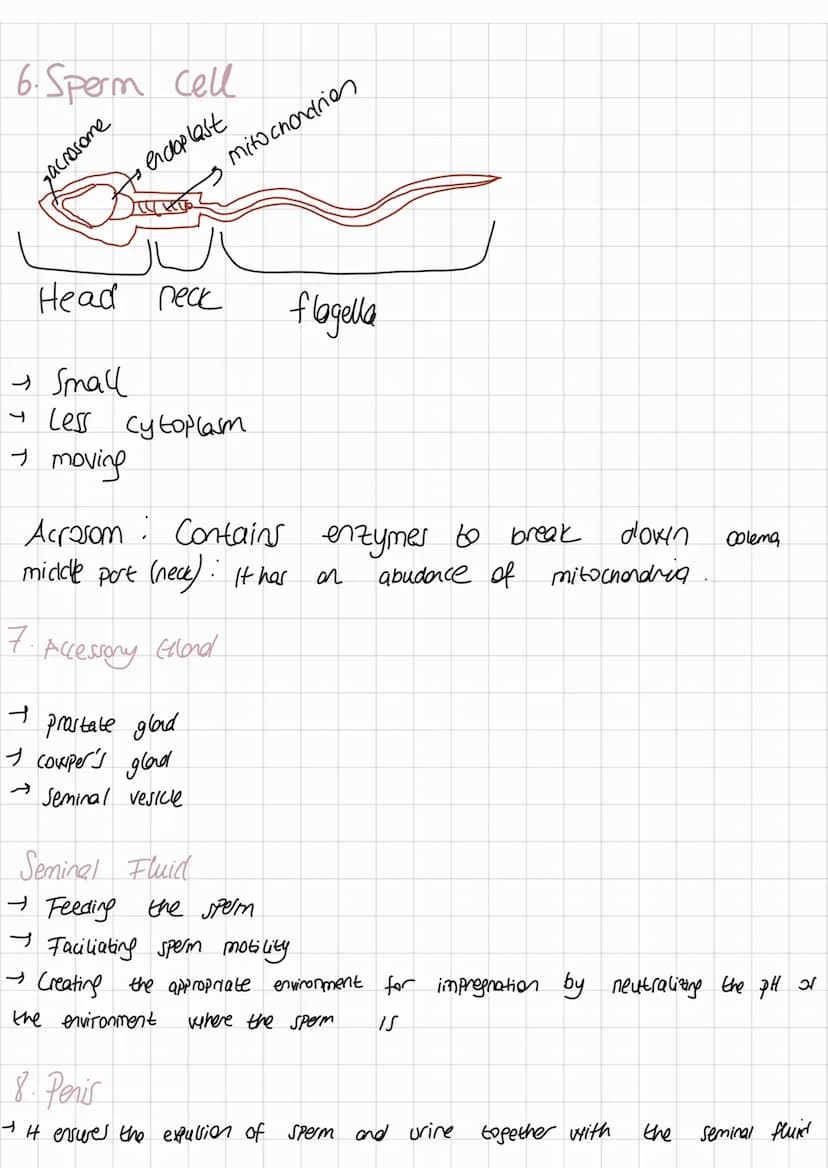 6. Sperm Cell
acrosome
endoplast
mitochondrion
Head neck flagella
→ Small
→ Less cytoplasm
→ moving
Acrosom : Contains enzymes to break down oolema
middle part (neck) : It has an abudance of mitochondria.
7. Accessory Gland
→ prostate gland
→ cowper's gland
→ Seminal vesicle
Seminal Fluid
→ Feeding the sperm
→ Faciliating sperm motility
→ Creating the appropriate environment for impregnation by neutralizing the pH of
the environment where the sperm is
8. Penis
→ It ensures the expulsion of sperm and urine together with the seminal fluid